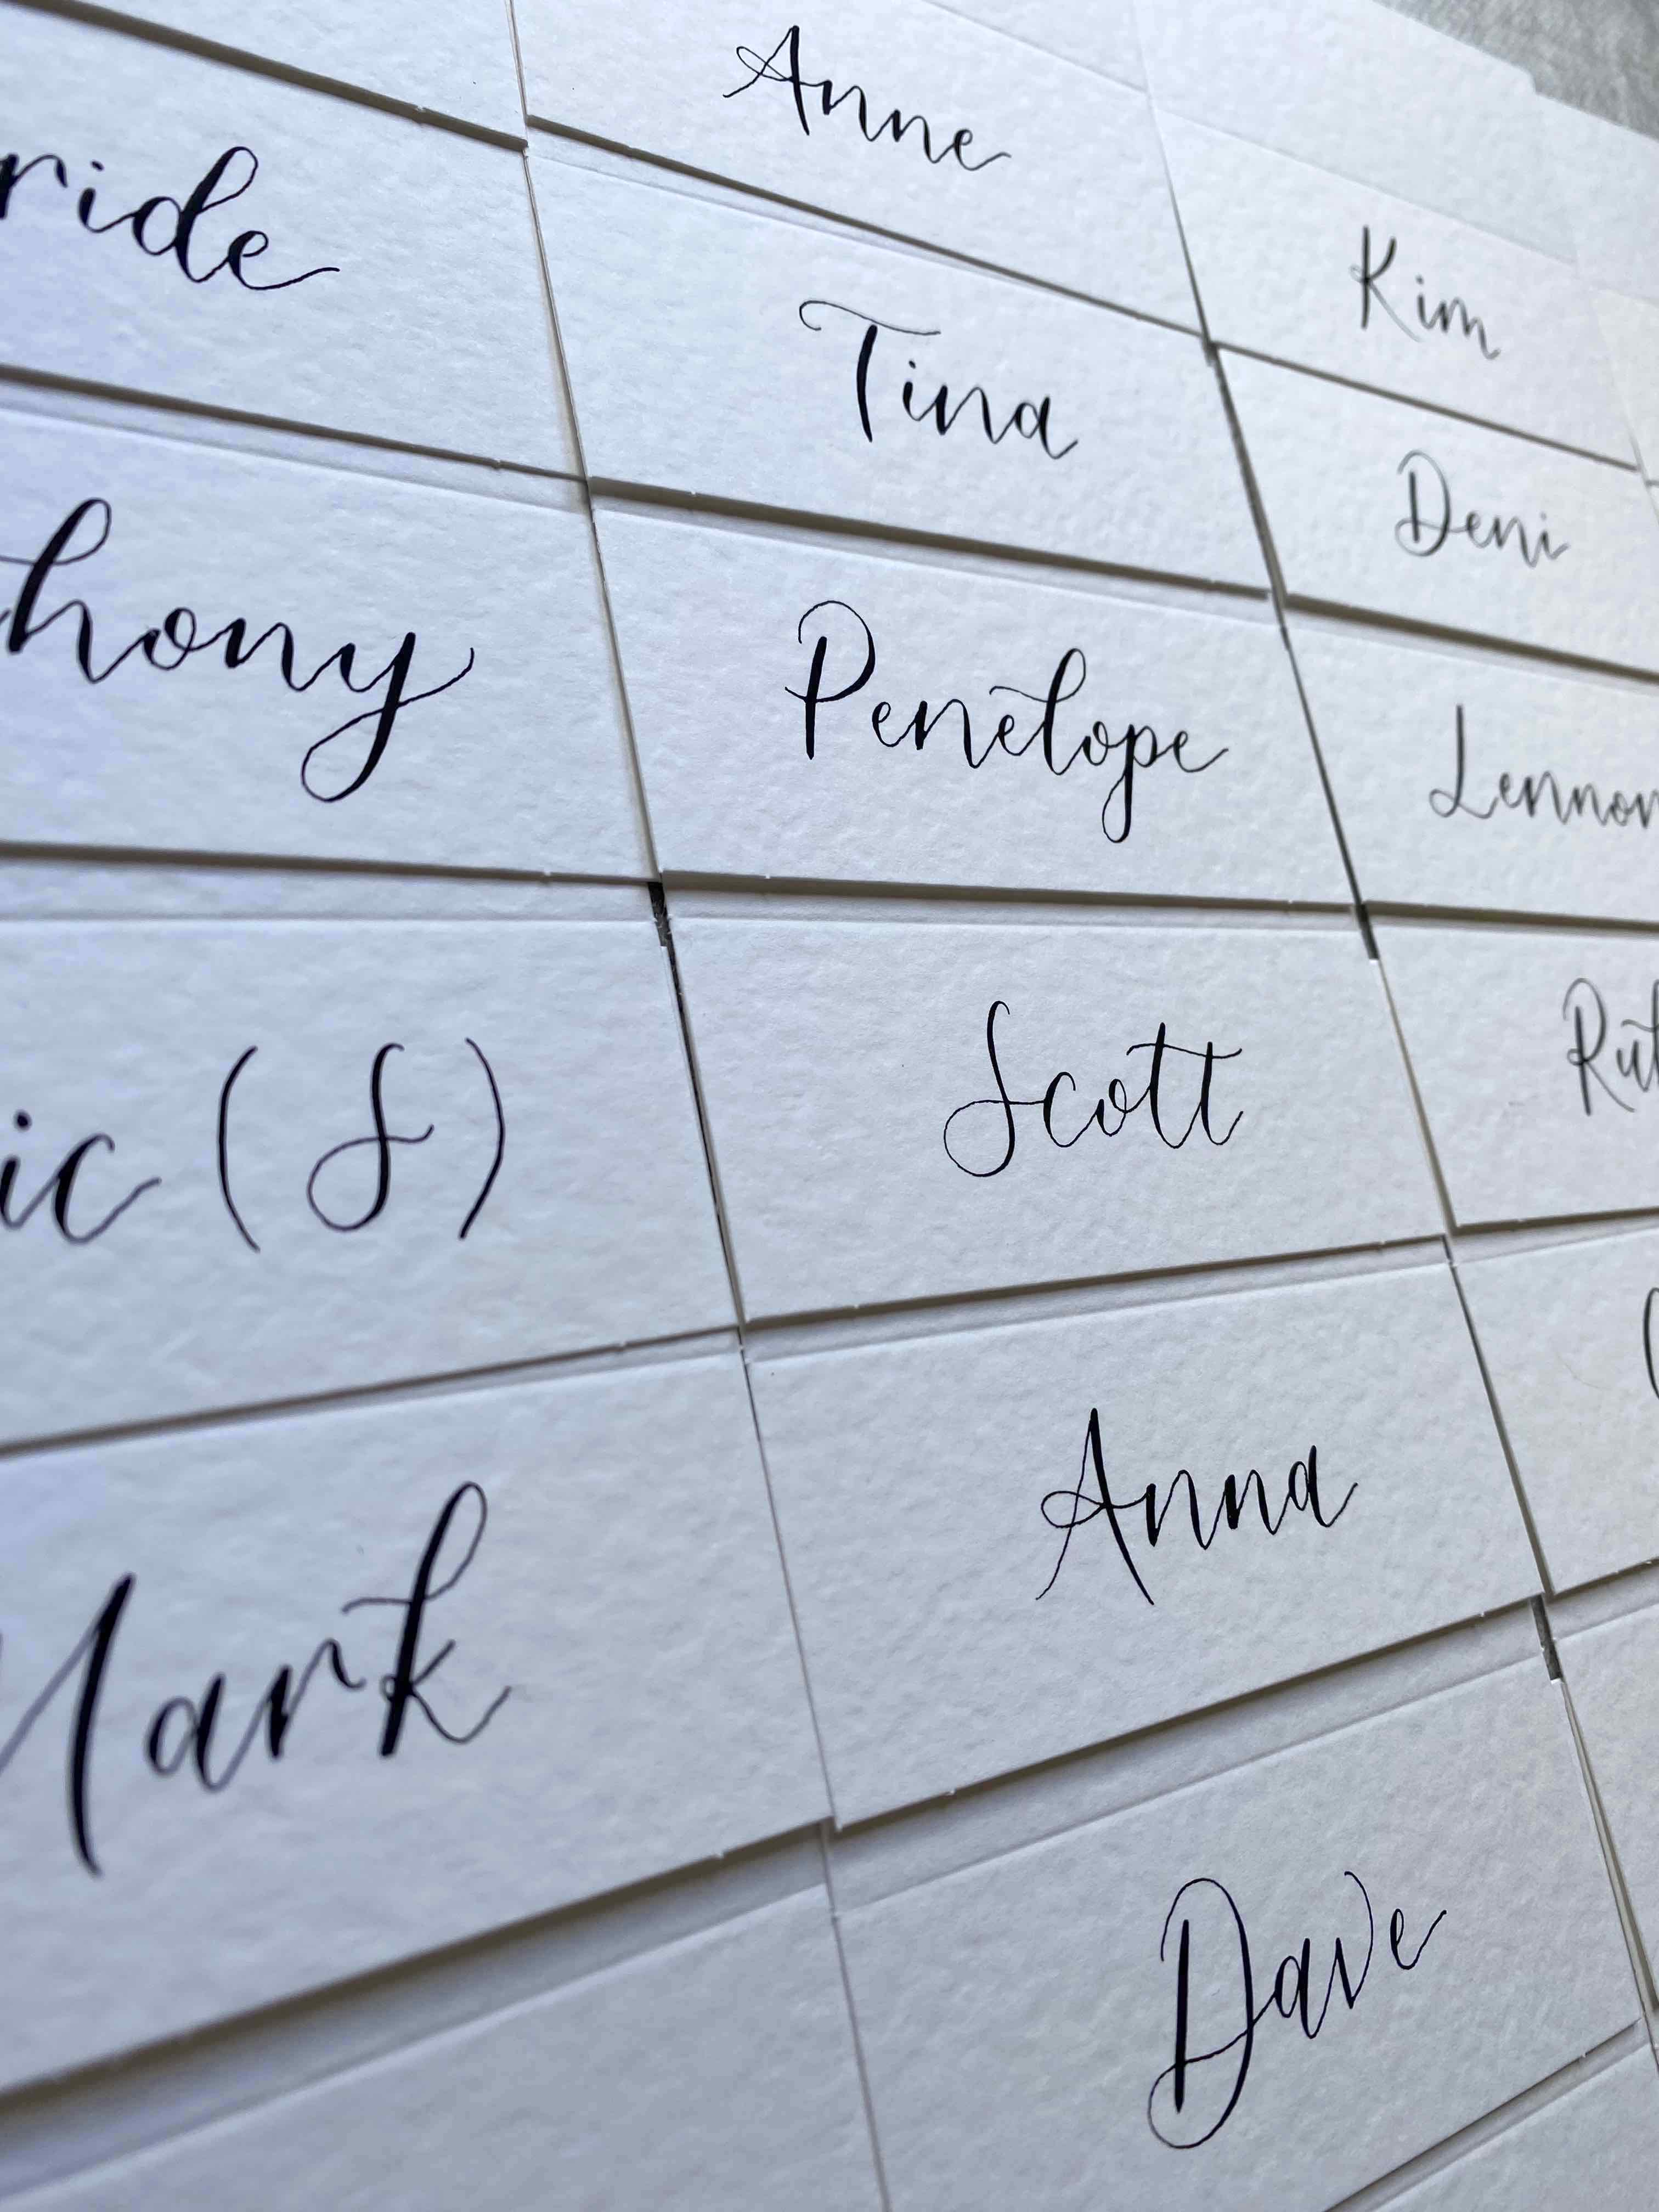 Anne
Kim
ride
Tina
Deni
hony
Penelope
Lennon
ic (S)
Scott
Rut
Mark
Anna
Dave